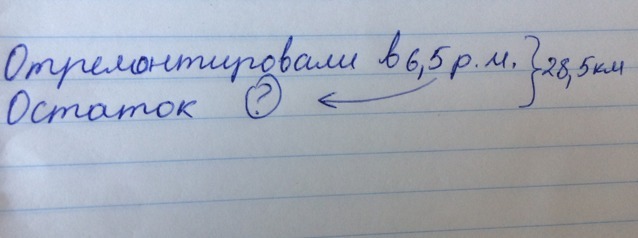 Отремонтировали в 6,5 р. м. } 28,5 км
Остаток ?